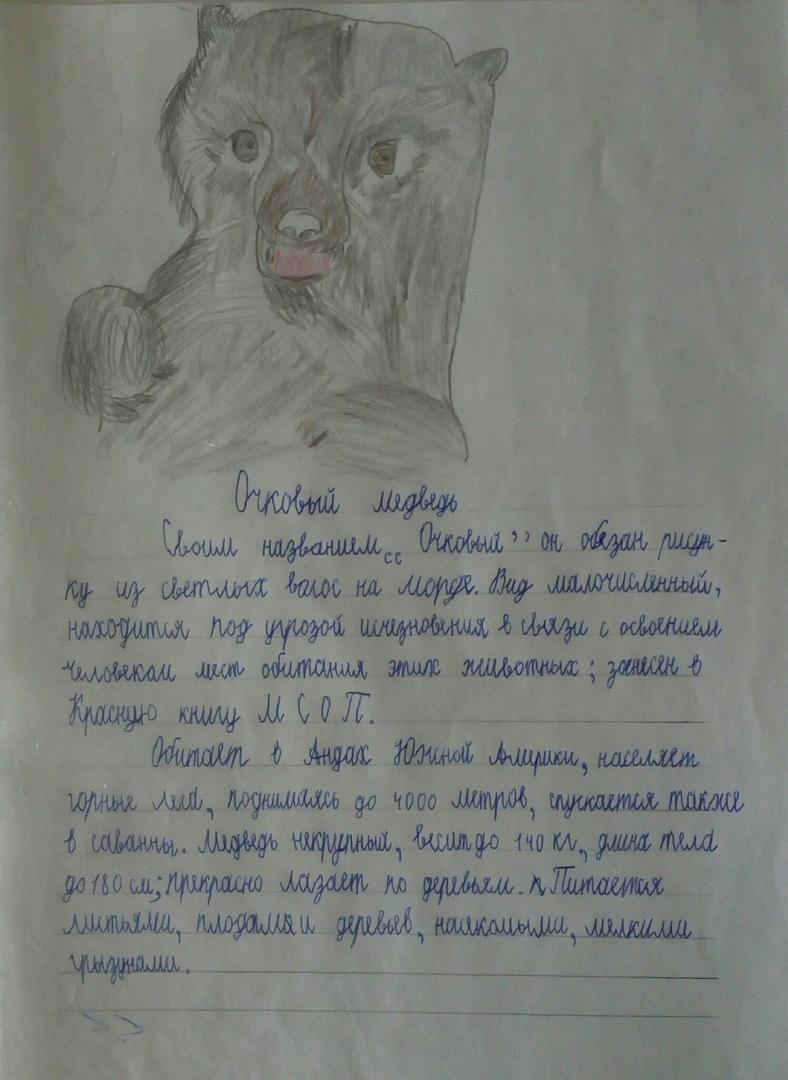 Очковый медведь
Своим названием „Очковый” он обязан рисун-
ку из светлых волос на морде. Вид малочисленный,
находится под угрозой исчезновения в связи с освоением
человеком мест обитания этих животных; занесен в
Красную книгу М С О П.
Обитает в Андах Южной Америки, населяет
горные леса, поднимаясь до 4000 метров, спускается также
в саванны. Медведь некрупный, весит до 140 кг, длина тела
до 180 см; прекрасно лазает по деревьям. Питается
листьями, плодами и деревьев, насекомыми, мелкими
грызунами.